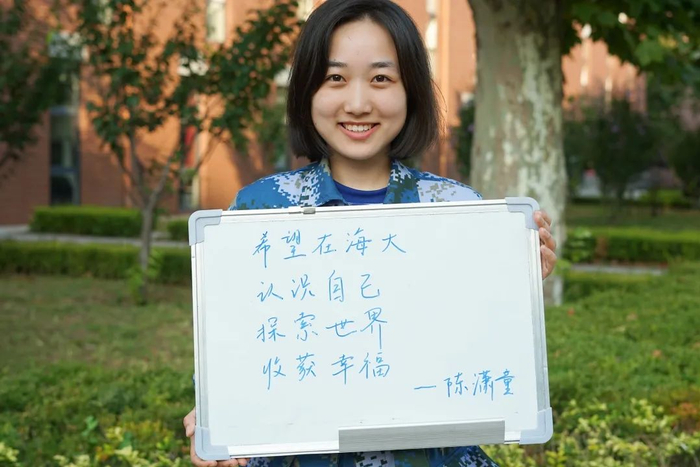 希望在海大
认识自己
探索世界
收获幸福
—陈潇童